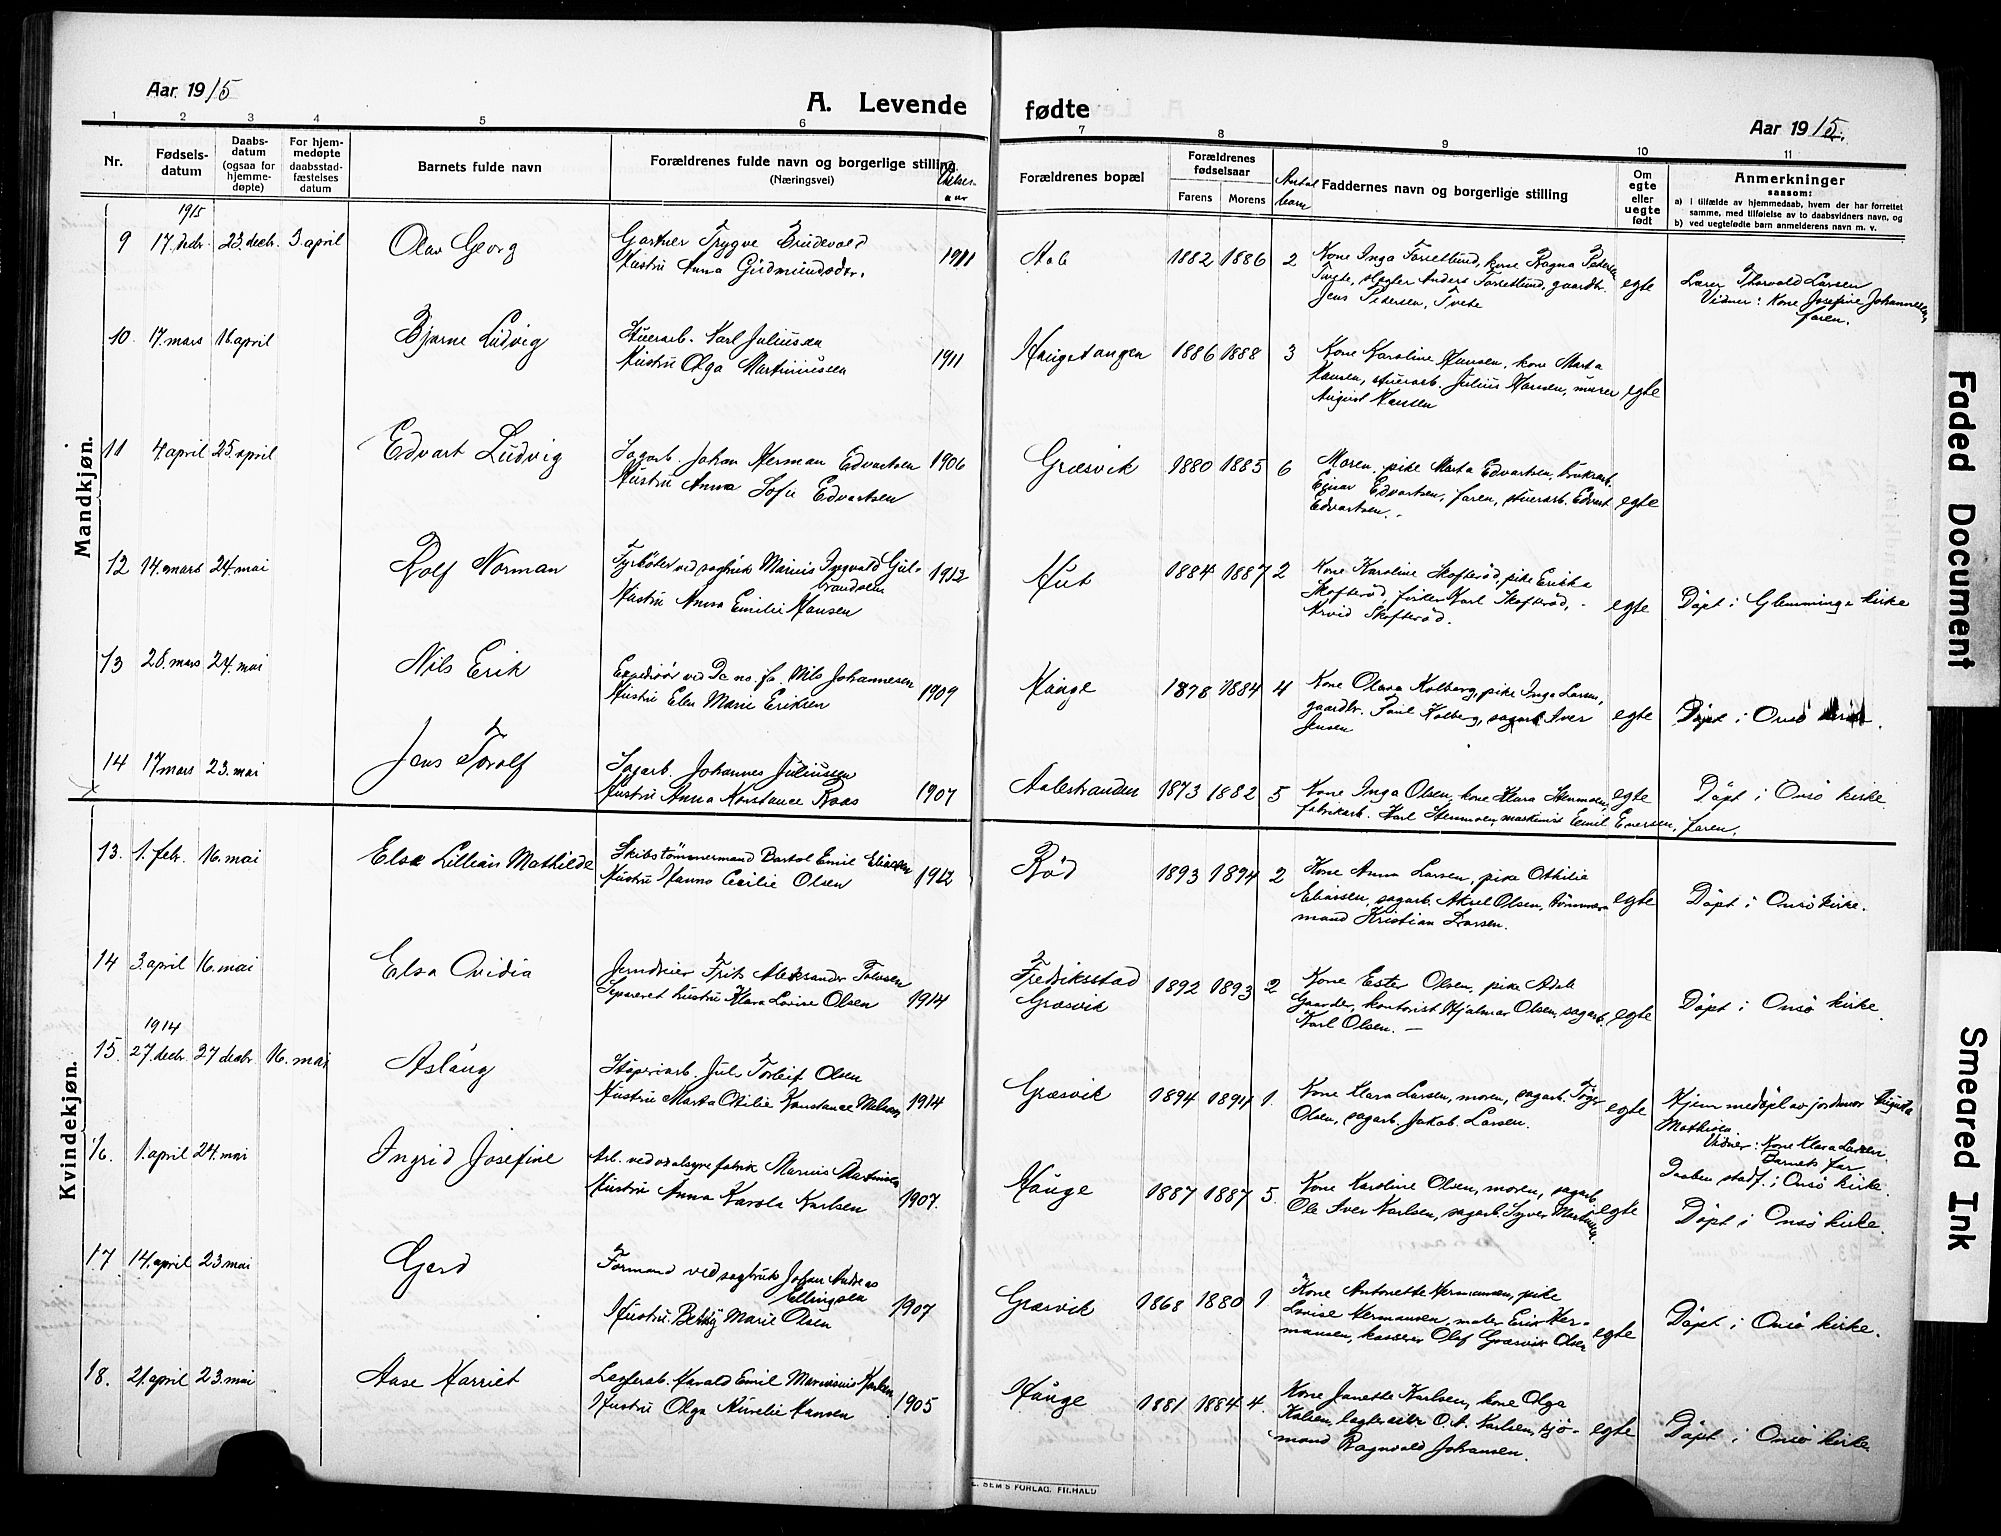 Aar 1915
A. Levende fødte
Aar 1915.
1 2 3 4 5 6 7 8 9 10 11
Nr.
Fødsels-
datum
Daabs-
datum
(ogsaa for
hjemme-
døpte)
For hjem-
medøpte
daabsstad-
fæstelses
datum
Barnets fulde navn
Forældrenes fulde navn og borgerlige stilling
(Næringsvei)
Forældrenes bopæl
Forældrenes
fødselsaar
Farens Morens
Antal
barn
Faddernes navn og borgerlige stilling
Om
egte
eller
uegte
født
Anmerkninger
saasom:
a) i tilfælde av hjemmedaab, hvem der har forrettet
samme, med tilføielse av to daabsvidners navn, og
b) ved uegtefødte barn anmelderens navn m. v.
Mandkjøn.
1915
9 17. decbr. 23. decb. 3. april Olav Georg
Gartner Trygve
Hustru Anna Gudmundsdtr. 1911
1882 1886 2
Kone Inga Torsetlund, kone Ragna Pedersen
Tvete, slagter Anders Torsetlund, gaardbr.
Jens Pedersen, Tvete
egte
Lærer Thorvald Larsen
Vidner: Kone Josefine Johannesen
faren.
10. 17. mars 18. april Bjarne Ludvig
Stuerarb. Karl Juliussen
Hustru Olga Martiniussen 1911
Haugetangen 1886 1888 3
Kone Karoline Hansen, kone Marta
Hansen, stuerarb. Julius Hansen, murer
August Hansen
egte
11 4 april 25. april Edvart Ludvig
Sagarb. Johan Herman Edvartsen 1906
Hustru Anna Sofie Edvartsen
Græsvik 1880 1885 6
Moren, pike Marta Edvartsen, bruksarb.
Einar Edvartsen, faren, stuerarb. Edvart
Edvartsen.
egte
12 14. mars 24. mai Rolf Norman
Fyrbøter ved sagbruk Marius Ingvald Gul-
brandsen 1912
Hustru Anna Emilie Hansen
1884 1887 2
Kone Karoline Skofterød, pike Ericka
Skofterød, fisker Karl Skofterød,
Arvid Skofterød.
egte
Døpt i Glemminge kirke
13 28. mars 24. mai Nils Erik
Expeditør ved De no. fa. Nils Johannesen
Hustru Elen Marie Eriksen 1909
Hauge 1878 1884 4
Kone Olava Kolberg, pike Inga Larsen,
gaardbr. Paul Kolberg, sagarb. Iver
Jensen
egte
Døpt i Onsø kirke.
14 17 mars 23. mai Jens Torolf
Sagarb. Johannes Juliussen
Hustru Anna Konstance Roas 1907
Aalestranden 1873 1882 5
Kone Inga Olsen, kone Klara Stenmoen,
fabrikarb. Karl Stenmoen, maskinist Emil Enersen, faren.
egte
Døpt i Onsø kirke
Kvindekjøn.
13. 1. febr. 16. mai Else Lillian Mathilde
Skibstømmermand Bartol Emil Eliassen
Hustru Hanna Cecilie Olsen 1912
Rød 1893 1894 2
Kone Anna Larsen, pike Othilie
Eliassen, sagarb. Aksel Olsen, tømmer-
mand Kristian Larsen.
egte
Døpt i Onsø kirke.
14 3. april 16. mai Elsa Ovidia
Jerndreier Frits Aleksander
Separeret hustru Klara Lovise Olsen 1914
Fredriksstad
Græsvik
1892 1893 2
Kone Ester Olsen, pike Adele
Gaarder, kontorist Hjalmar Olsen, sagarb.
Karl Olsen.
egte
Døpt i Onsø kirke.
1914
15. 27. decbr. 27 decbr. 16. mai Aslaug
Støperiarb. Jul. Torleif Olsen
Hustru Marta Otilie Konstance 1914
Græsvik 1894 1894 1.
Kone Klara Larsen, moren, sagarb.
Olsen, sagarb. Jakob Larsen.
egte
Hjemmedøpt av jordmor Augusta
Mathisen
Vidner: Kone Klara Larsen
Barnets far
Daaben stadf. i Onsø kirke.
16. 1. april 24. mai Ingrid Josefine
Arb. ved oxalsyrefabrik Marius Martinsen
Hustru Anna Karola Karlsen 1907.
Hauge 1887 1887 5.
Kone Karoline Olsen, moren, sagarb.
Ole Iver Karlsen, sagarb. Syver Martinsen.
egte
Døpt i Onsø kirke.
17 14. april 23 mai Gerd
Formand ved sagbruk Johan Andreas
Ellingsen
Hustru Betty Marie Olsen 1907
Græsvik 1868 1880 1
Kone Antonette Hermansen, pike
Lovise Hermansen, maler Erik Her-
mansen, kasserer Olof Græsvik Olsen
egte
Døpt i Onsø kirke.
18. 21. april 23. mai Aase Harriet
Lagerarb. Harald Emil Marinius Karlsen
Hustru Olga Aurelie Hansen 1905
Hauge 1881 1884 4.
Kone Janette Karlsen, kone Olga
Karlsen, O. A. Karlsen, sjø-
mand Ragnvald Johansen.
egte
Døpt i Onsø kirke.
SEM'S FORLAG, FR.HALD
Faded Document
Smeared Ink